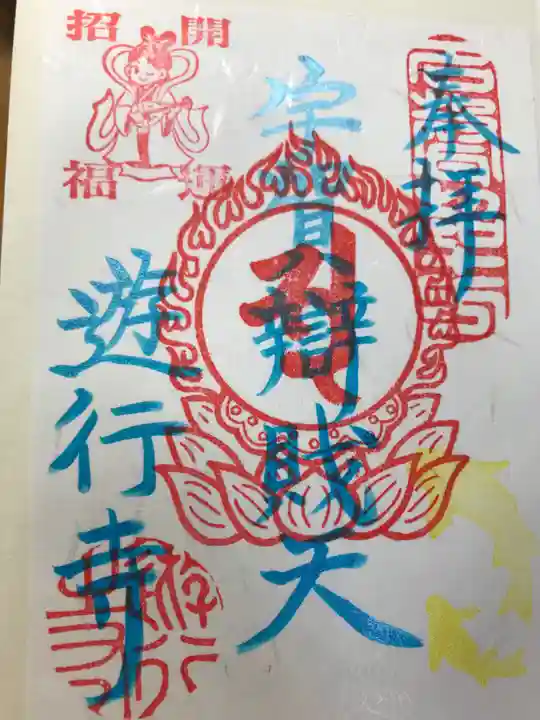 奉拝
宇賀辯財天
遊行寺
開運
招福